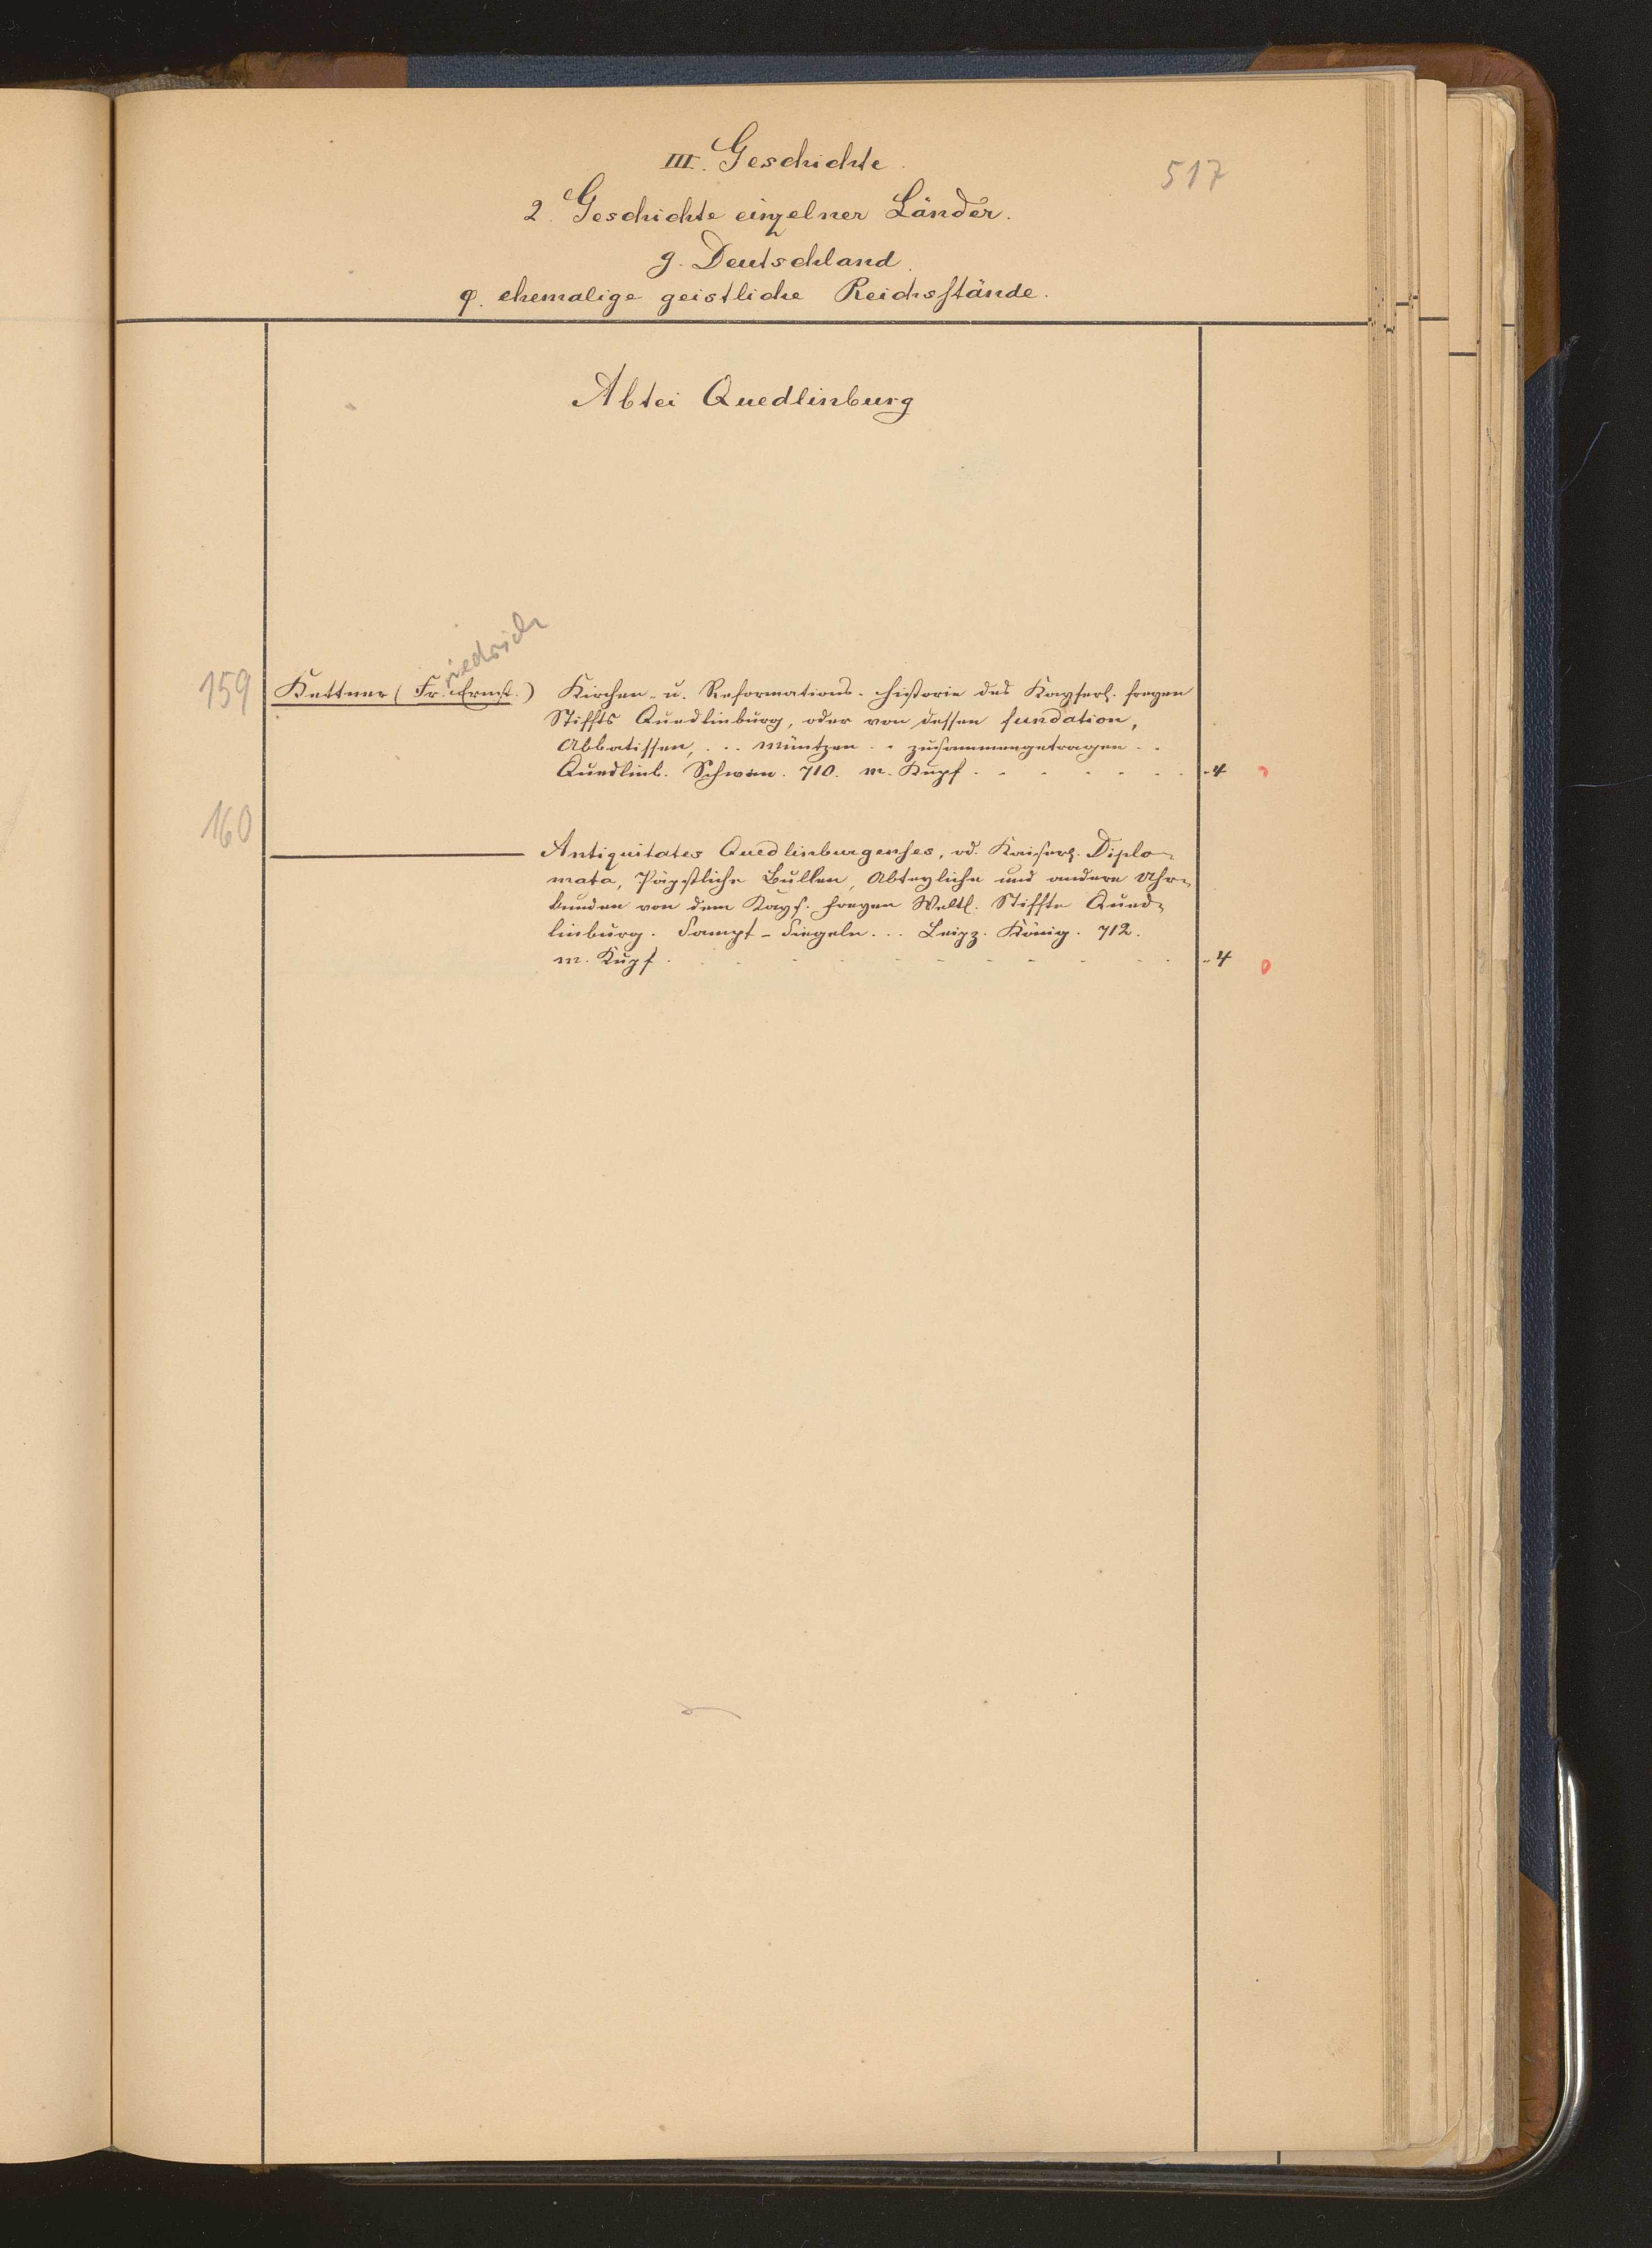 III. Geschichte.
517
2. Geschichte einzelner Länder.
g. Deutschland.
φ. ehemalige geistliche Reichsstände.
Abtei Quedlinburg
riedrich
159 Kettner (Fr. Ernst.) Kirchen- u. Reformations-historie des Kayserl. freyen
Stiffts Quedlinburg, oder von dessen fundation,
Abbatissen, ... müntzen .. zusammengetragen ..
Quedlinb. Schwan. 710. m. Kupf. 4
160
Antiquitates Quedlinburgenses, od. Kaiserl. Diplo-
mata, Päpstliche Bullen, Abteyliche und andere Uhr-
kunden von dem Kays. freyen Weltl. Stiffte Qued-
linburg. Sampt-Siegeln... Leipz. König. 712.
m. Kupf. 4